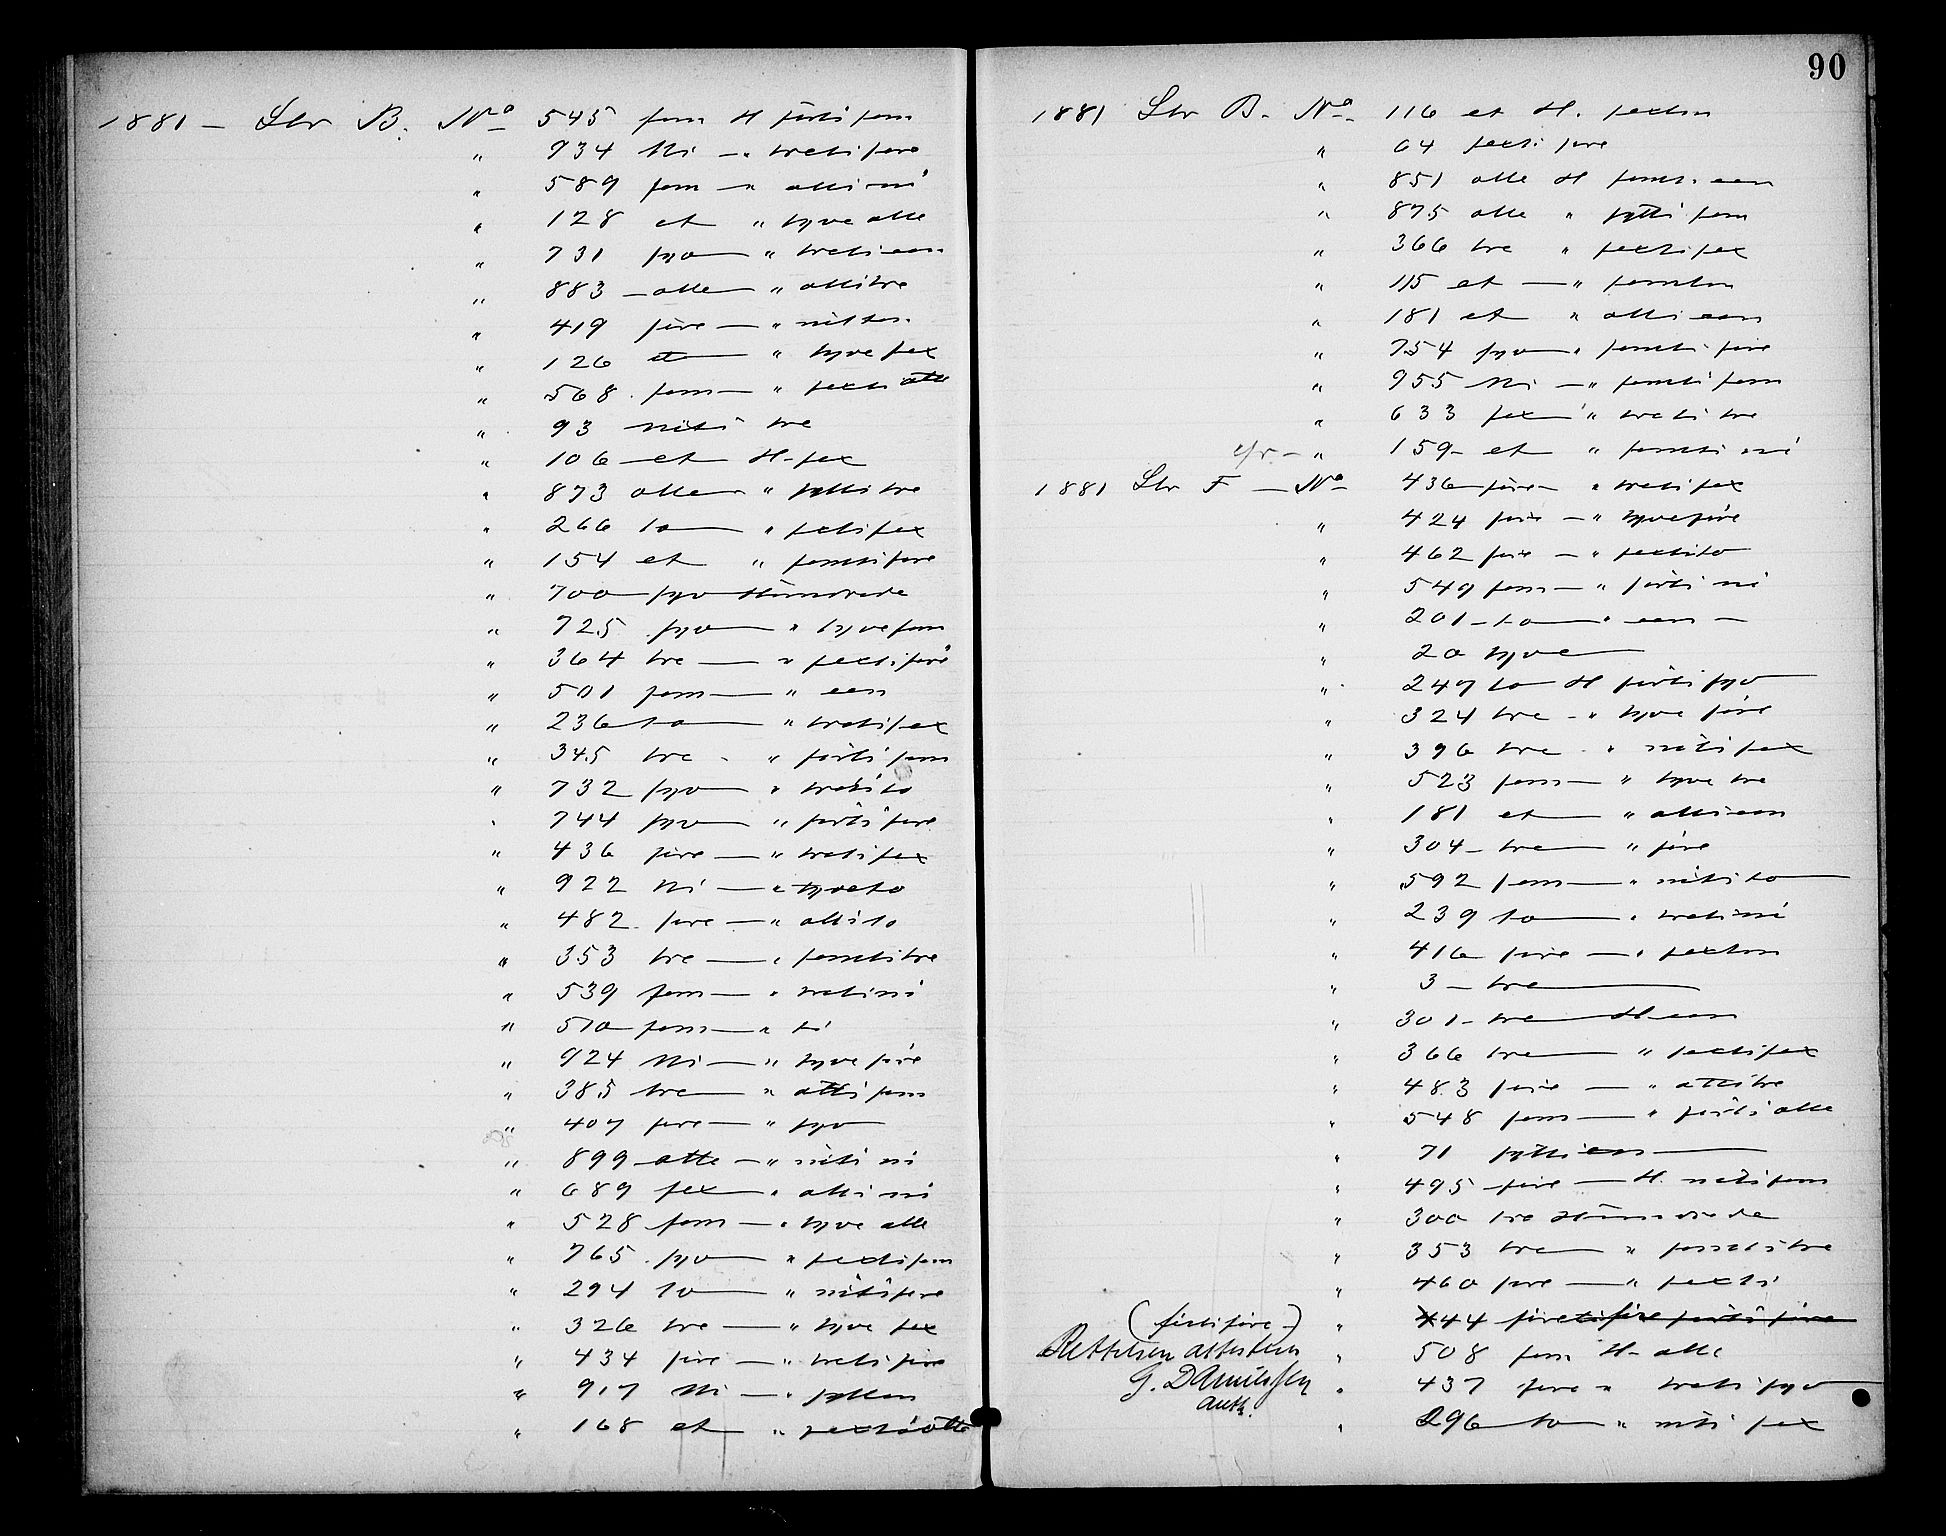 1881 – Ltr B. No 545 fem H førti fem
" 934 Ni – " treti fire
" 589 fem – " otti ni
" 128 et " tyve otte
" 731 syv – " treti een
" 883 – otte – " otti tre
" 419 fire – " nitten
" 126 et – " tyve sex
" 568 fem – " sexti otte
" 93 niti tre
" 106 – et H – sex
" 873 otte – " sytti tre
" 266 to – " sexti sex
" 154 et " femti fire
" 700 – syv Hundrede
" 725 syv – " tyve fem
" 364 tre – " sexti fire
" 501 fem – " een
" 236 to – " treti sex
" 345 tre – " førti fem
" 732 syv " treti to
" 744 syv – " førti fire
" 436 fire – " treti sex
" 922 Ni – " tyve to
" 482 fire – " otti to
" 353 tre – " femti tre
" 539 fem – " treti ni
" 510 – fem – " ti
" 924 Ni – " tyve fire
" 385 tre – " otti fem
" 407 fire – " syv
" 899 – otte – " niti ni
" 689 sex – " otti ni
" 528 fem – " tyve otte
" 765 syv – " sexti fem
" 294 to – " niti fire
" 326 tre – " tyve sex
" 434 fire – " treti fire
" 917 Ni – " sytten
" 168 et – " sexti otte
90
1881 Ltr B. No 116 et H. sexten
" 64 sexti fire
" 851 otte H femti een
" 875 otte " sytti fem
" 366 tre " sexti sex
" 115 et – " femten
" 181 et " otti een
" 754 syv – " femti fire
" 955 Ni – " femti fem
" 633 sex – " treti tre
" 159 – et " femti ni
1881 Ltr F – No 436 – fire – " treti sex
" 424 fire – " tyve fire
" 462 fire – " sexti to
" 549 fem – " førti ni
" 201 – to – " een –
" 20 tyve –
" 247 to H førti syv
" 324 tre – " tyve fire
" 396 tre " niti sex
" 523 fem – " tyve tre
" 181 et – " otti een
" 304 – tre – " fire
" 592 fem – " niti to –
" 239 to – " treti ni
" 416 fire – " sexten
" 3 – tre –
" 301 – tre – H een
" 366 tre – " sexti sex
" 483 fire – " otti tre
" 548 fem – " førti otte
" 71 sytti een –
" 495 – fire – H. niti fem
" 300 tre Hundrede
" 353 tre – " femti tre
" 460 fire – " sexti
(førti fire –) " 444 fire ti fire førti fire
Rettelsen attesteres " 508 fem H – otte
G. Danielsen " 437 fire " treti syv
Auth. " 296 to – " niti sex